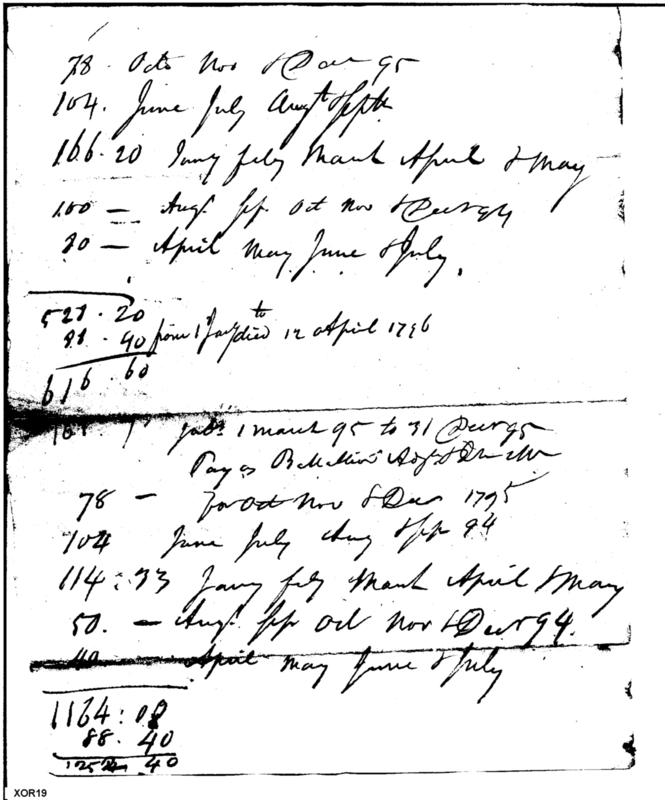 78 . Octo Nov & Decr 95
104. June July Augt & Septr
166.20 Jany feby March April & May
100 — Augt Sep. Oct Nov & Decr 94
80 — April May June & July.
528 . 20
88 . 40 from 1st Jany to died 12 April 1796
616 . 60
1 March 95 to 31 Decr 95
Pay as Battalion
78 — for Oct Nov & Decr 1795
104 June July Aug & Sep 94
114 : 33 Jany feby March April & May
50. — Augt Sep Oct Nov & Decr 94.
40 April May June & July
1164 : 08
88 . 40
1252 40
XOR19